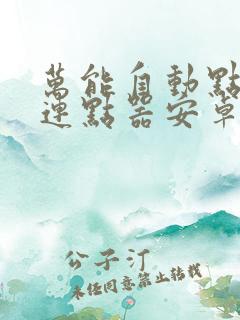 萬能自動點
連點器安卓
公子汀
未經同意禁止轉載